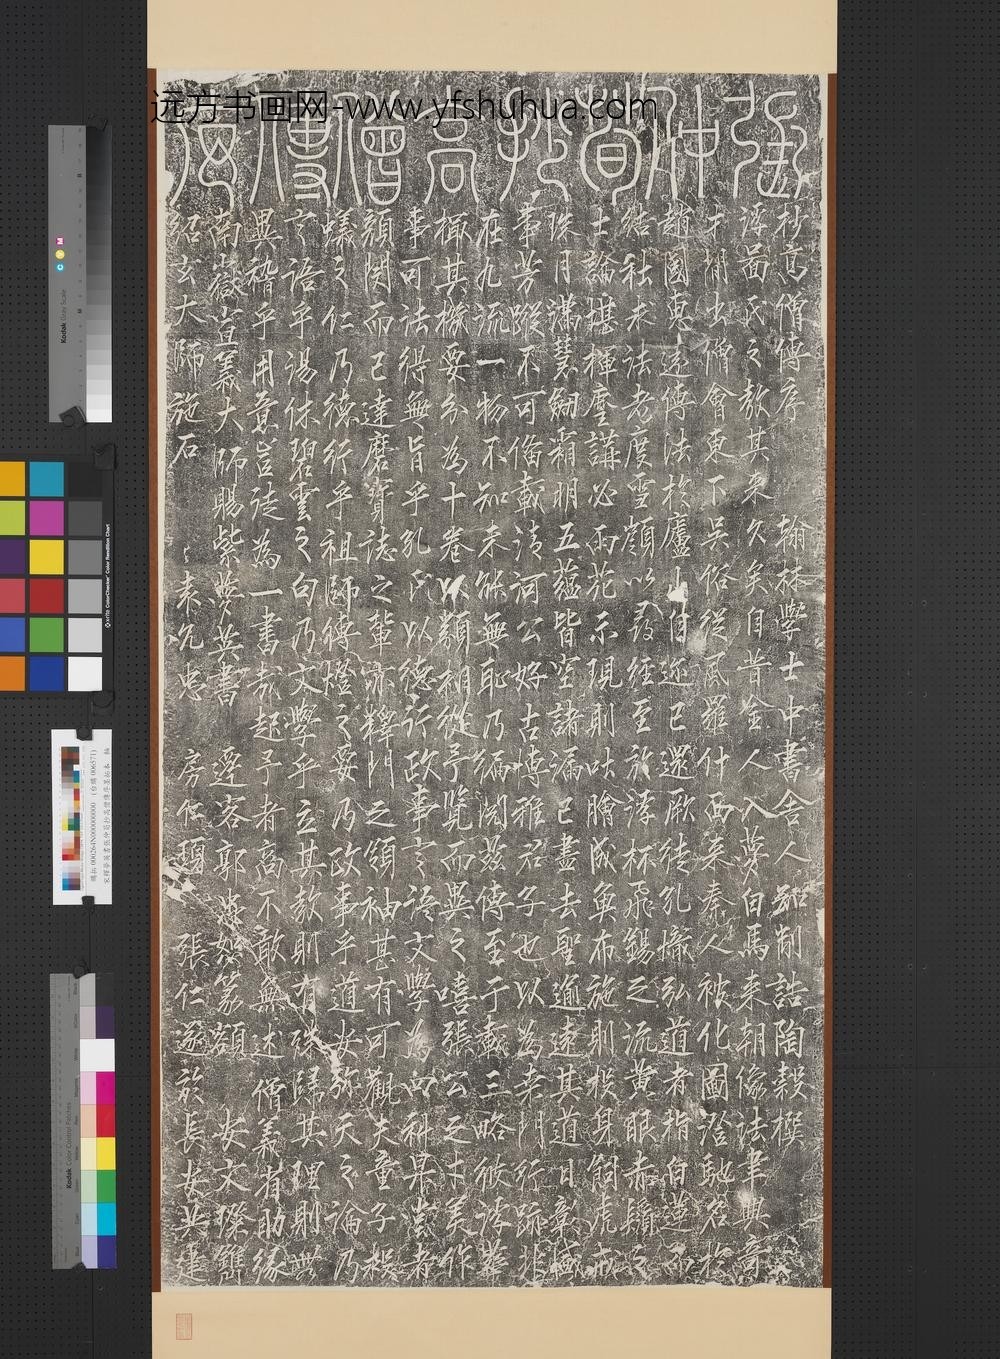 远方书画网-www.yfshuhua.com
張仲荀抄高僧傳序
抄高僧傳序 翰林學士中書舍人知制誥陶穀撰
浮圖氏之教其来久矣自昔金人入夢白馬来朝像法聿興帝
才湘出僧會東下吳俗從風羅什西来秦人被化圖澄馳名於
趙國惠遠傳法於廬山自迩已還厥徒孔熾弘道者指白蓮而
結社求法者度雪嶺以尋經至於浮杯飛錫之流黄眼赤髭之
士論堪揮麈講必雨花示現則吐膾成魚布施則投身飼虎戒
珠月滿慧劒霜明五蘊皆空諸漏已盡去聖逾遠其道日彰盛
事芳蹤不可備載清河公好古博雅君子也以為桒門行跡非
在九流一物不知来能無耻乃編閱兹傳至于載三略彼浮華
撮其機要分為十卷以類相從予覽而異之嘻張公之才美作
事可法得無旨乎孔氏以德行政事言语文學為四科昇堂者
顏閔而已達磨寶誌之輩亦釋門之領袖甚有可觀夫童子救
蟻之仁乃德行乎祖師傳燈之要乃政事乎道安弥天之論乃
言语乎湯休碧雲之句乃文學乎立其教則有殊歸其理則無
異稽乎用意豈徒為一書哉起予者高不敢無述 僧義省助緣
南嶽宣義大師賜紫夢英書 逕容郭忠恕篆額 安文璨鐫
紹玄大師施石 袁允忠 房仁寶 張仁遂於長安共建
Kodak Gray Scale
C Y M
Kodak Color Control Patches
x-rite ColorChecker